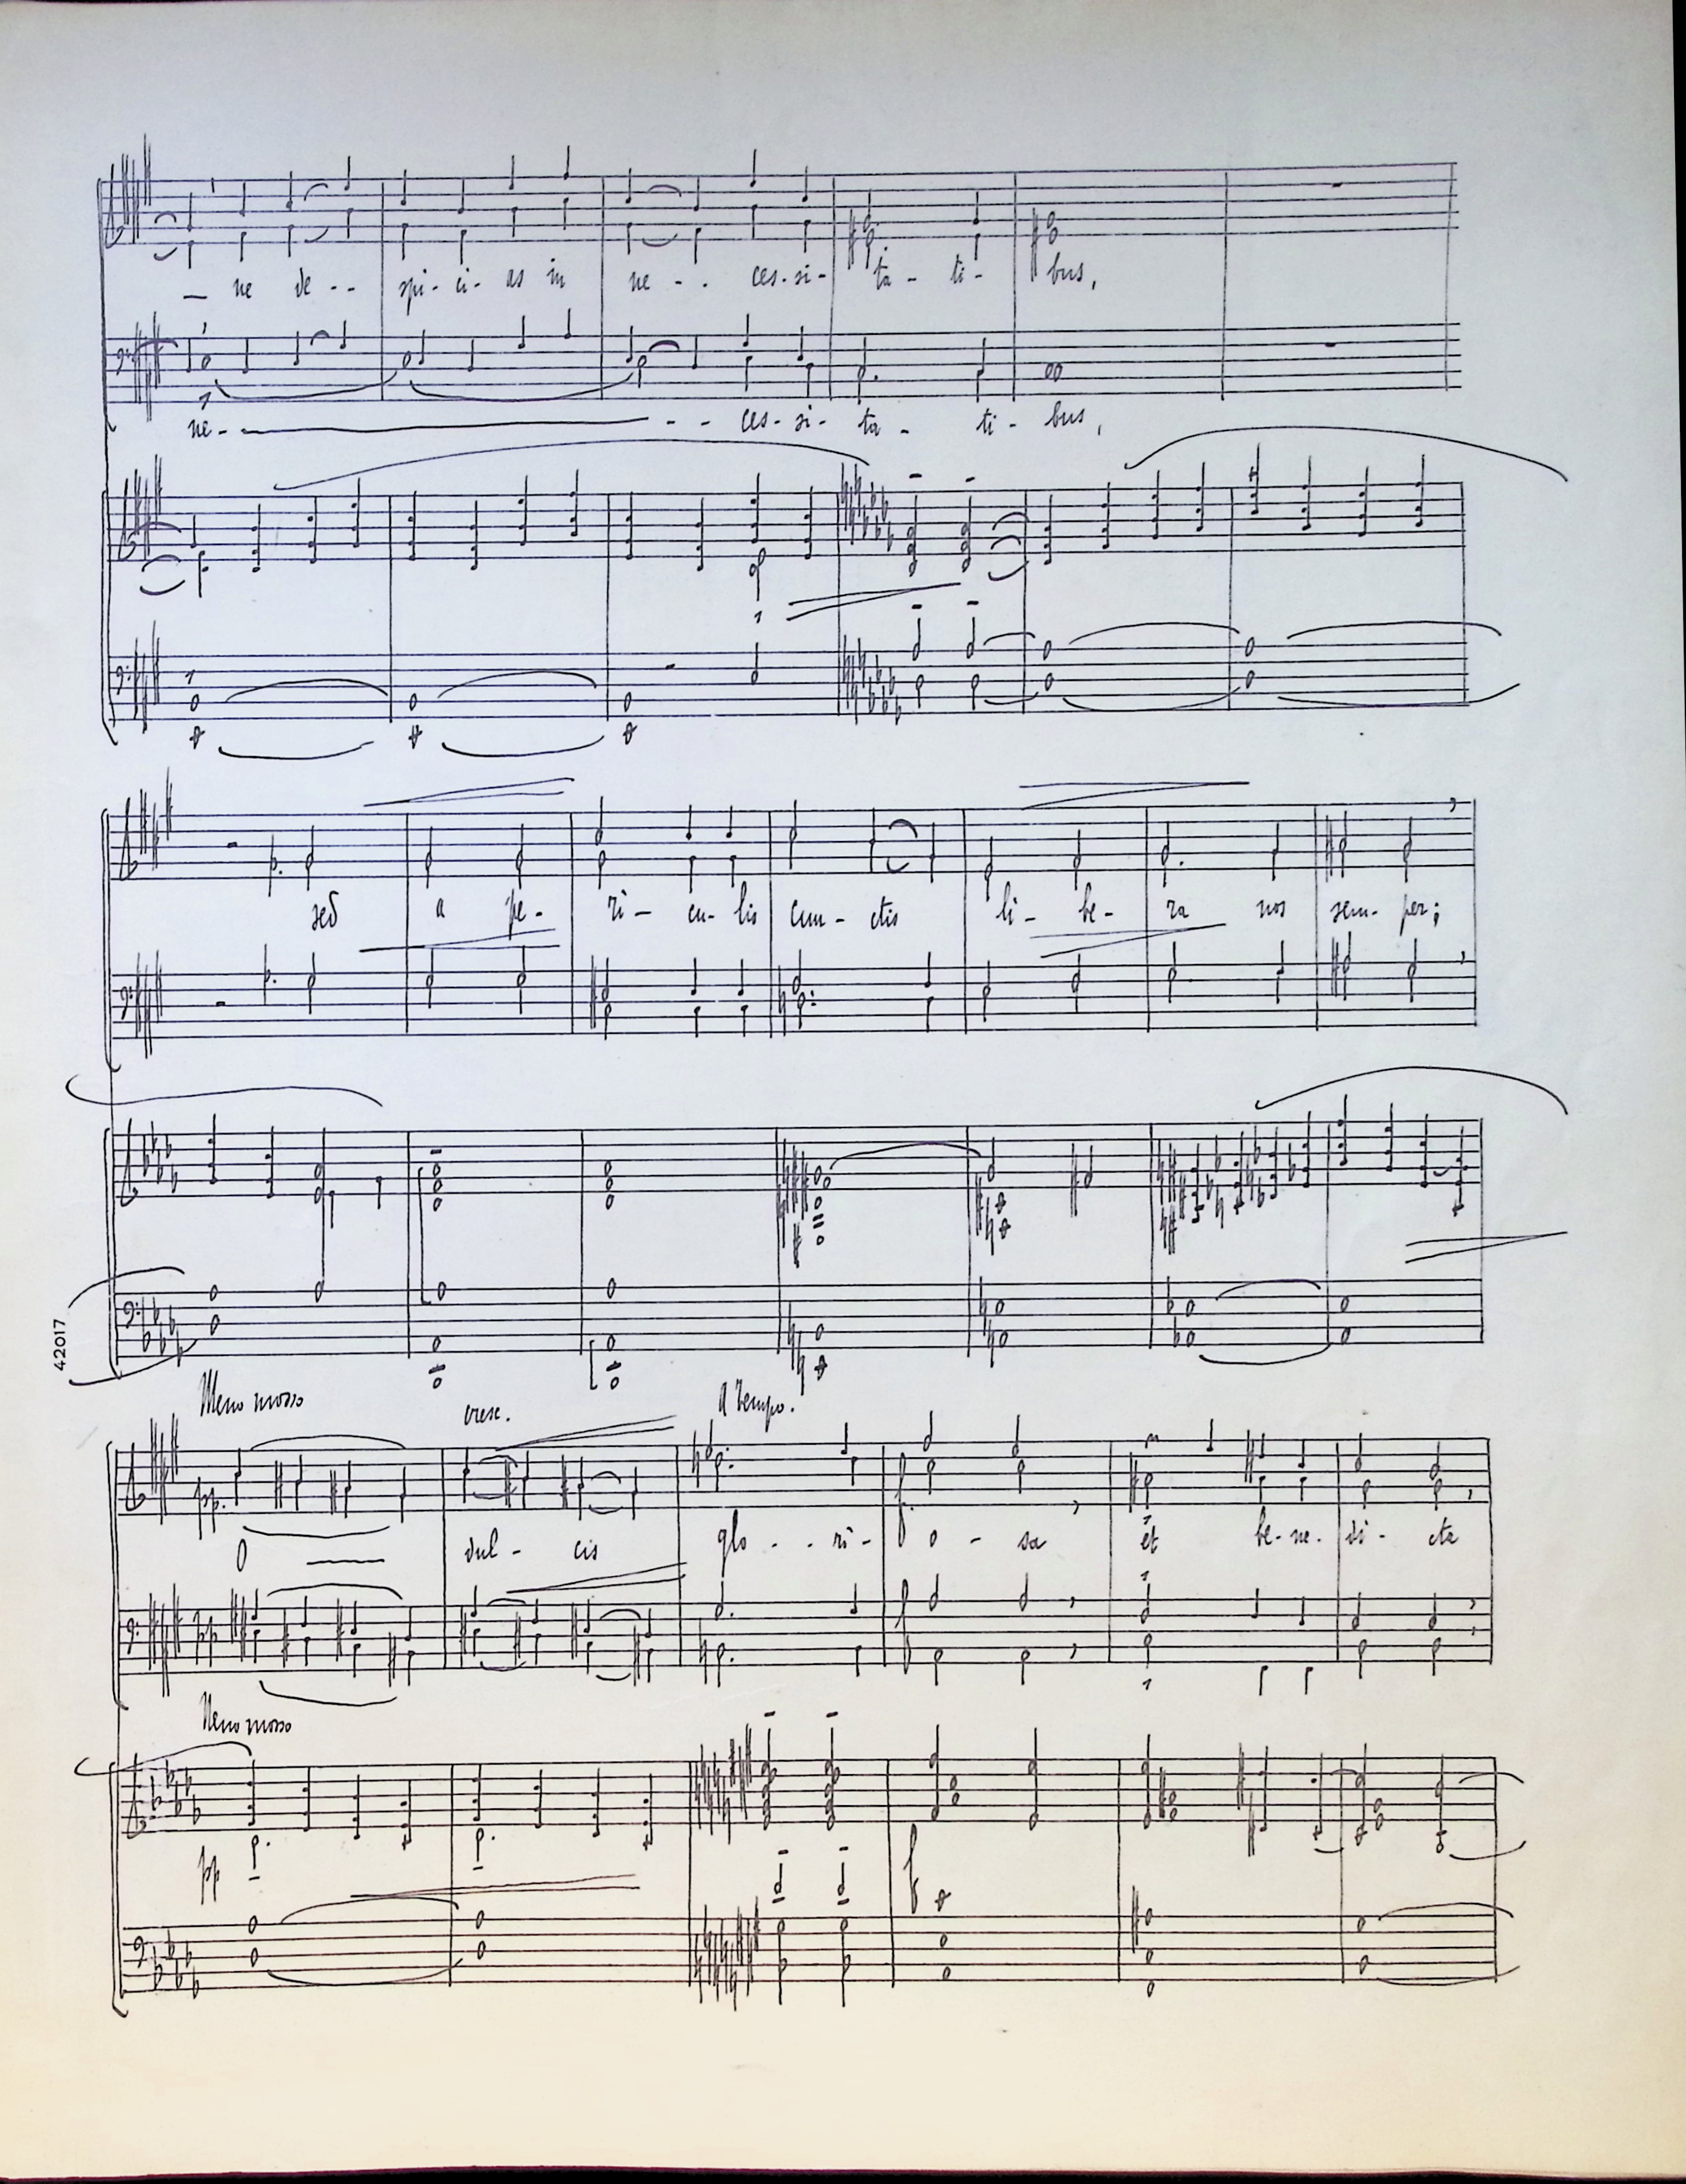 — ne de - - spi - ci - as in ne - . ces - si - ta - ti - bus,
ne - - - ces - si - ta - ti - bus,
sed a pe - ri - cu - lis cun - ctis li - be - ra nos sem - per;
42017
Meno mosso cresc. A tempo.
pp. f
O — dul - cis glo - - ri - o - sa et be - ne - di - cta
pp f
Meno mosso
pp f